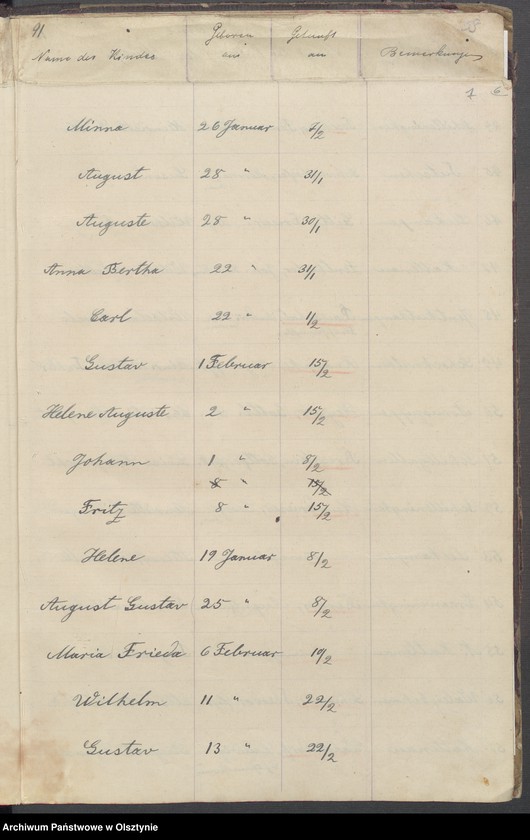 91.
Name des Kindes Geboren am Getauft am Bemerkungen
Minna 26 Januar 7/2
August 28 " 31/1
Auguste 28 " 30/1
Anna Bertha 22 " 31/1
Carl 22 " 1/2
Gustav 1 Februar 15/2
Helene Auguste 2 " 15/2
Johann 1 " 8/2
8 " 15/2
Fritz 8 " 15/2
Helene 19 Januar 8/2
August Gustav 25 " 8/2
Maria Frieda 6 Februar 10/2
Wilhelm 11 " 22/2
Gustav 13 " 22/2
Archiwum Państwowe w Olsztynie